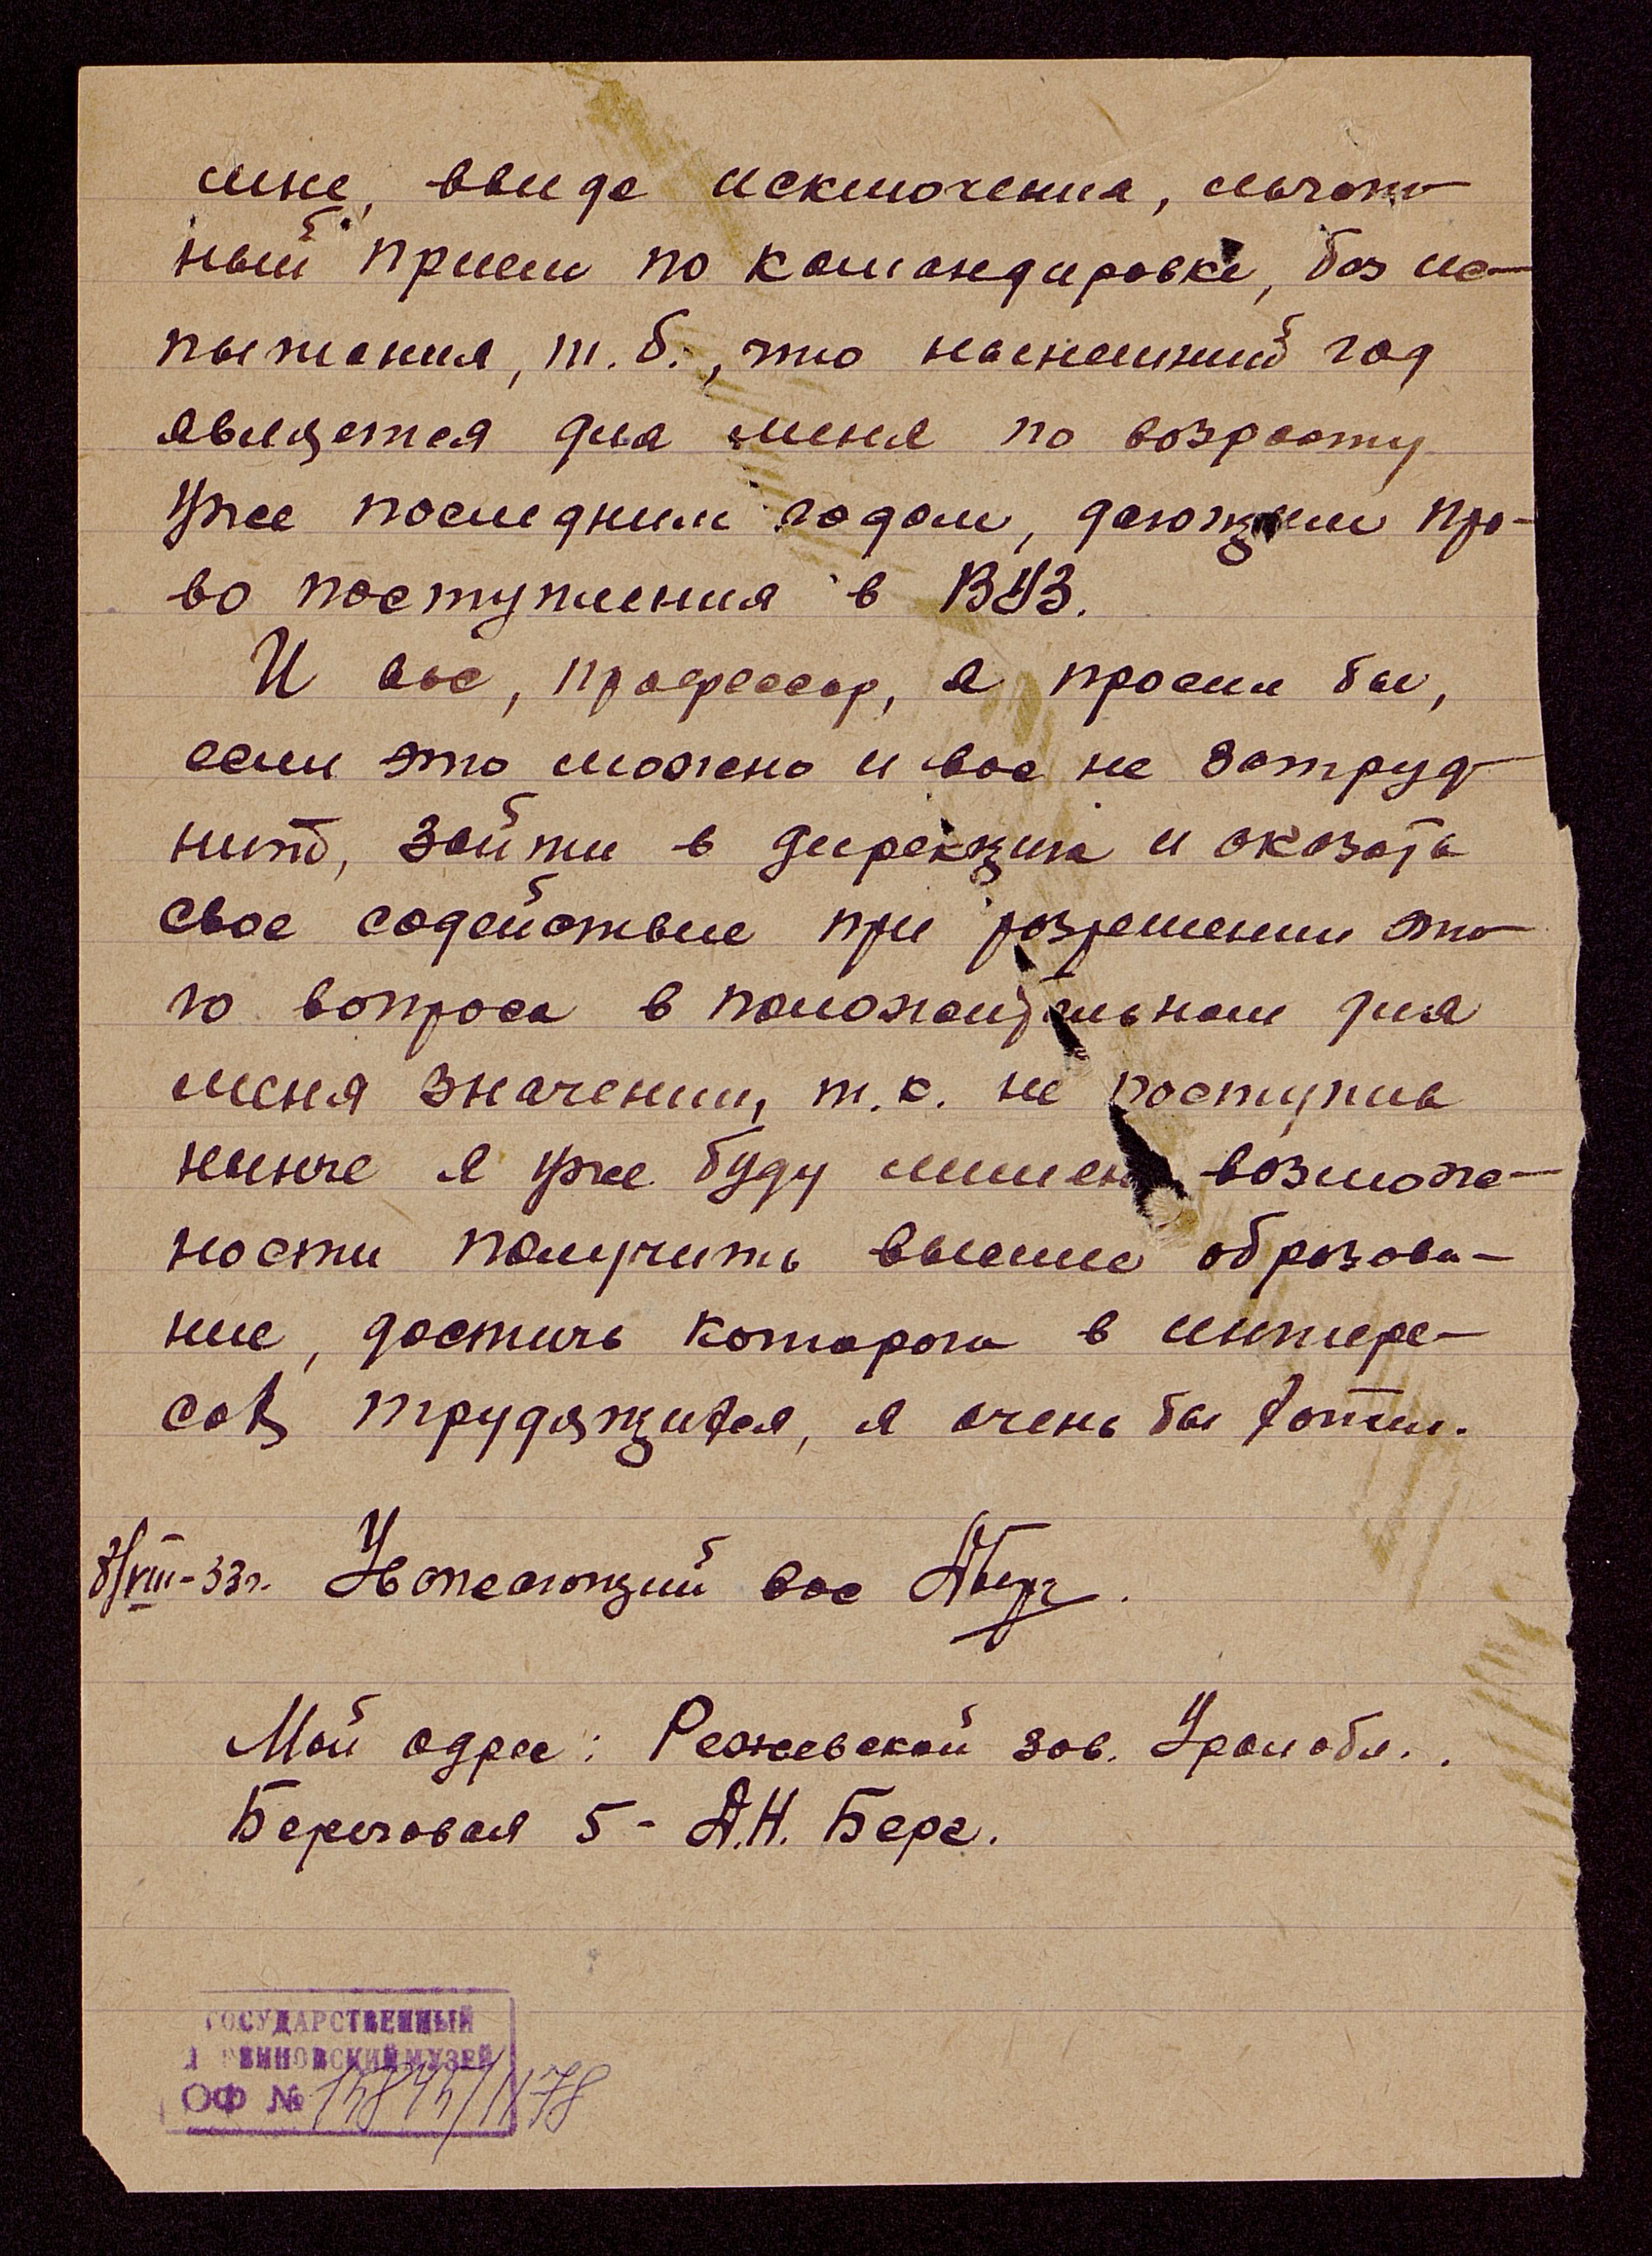 мне, ввиде исключения, льгот-
ный прием по командировке, без ис-
пытания, т.б., что нынешний год
является для меня по возрасту
уже последним годом, дающим пра-
во поступления в ВУЗ.
И вас, профессор, я просил бы,
если это можно и вас не затруд-
нит, зайти в дирекцию и оказать
свое содействие при разрешении это-
го вопроса в положительном для
меня значении, т.к. не поступив
нынче я уже буду лишен возмож-
ности получить высшее образова-
ние, достичь которого в интере-
сах трудящихся, я очень бы хотел.
8/VIII-33г. Уважающий вас АБерг.
Мой адрес: Режевской зав. Уралобл.
Береговая 5 - А.Н. Берг.
ГОСУДАРСТВЕННЫЙ
ДАРВИНОВСКИЙ МУЗЕЙ
ОФ №